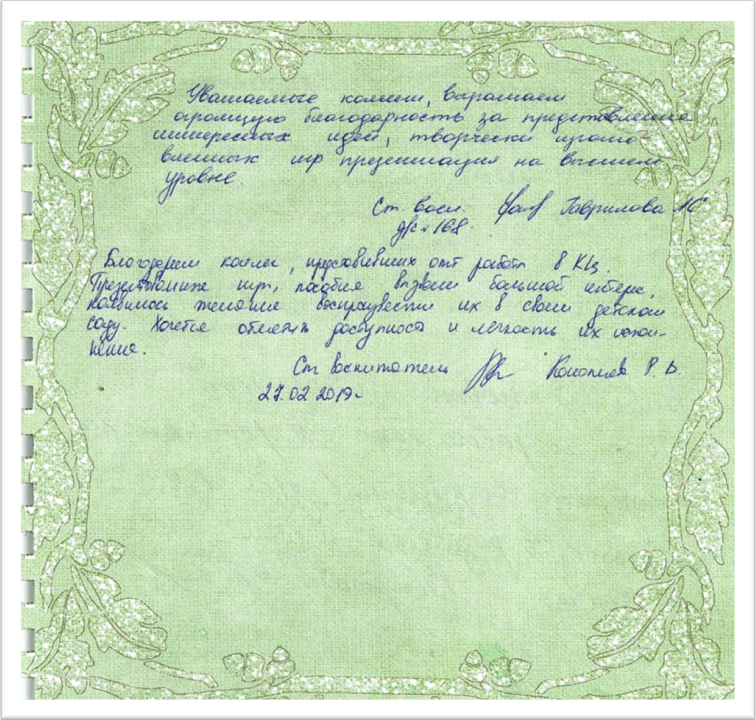 Уважаемые коллеги, выражаем
огромную благодарность за представление
интересных идей, творчески изгото-
вленных игр презентация на высшем
уровне.
Ст. восп. Гаврилова
д/с № 168.
Благодарим коллег, представивших опыт работы в КЦ.
игр, пособия вызвали большой интерес,
появилось желание воспроизвести их в своем детском
саду. Хочется отметить доступность и легкость их испол-
нения.
Ст воспитатель Р. В.
27.02 2019г